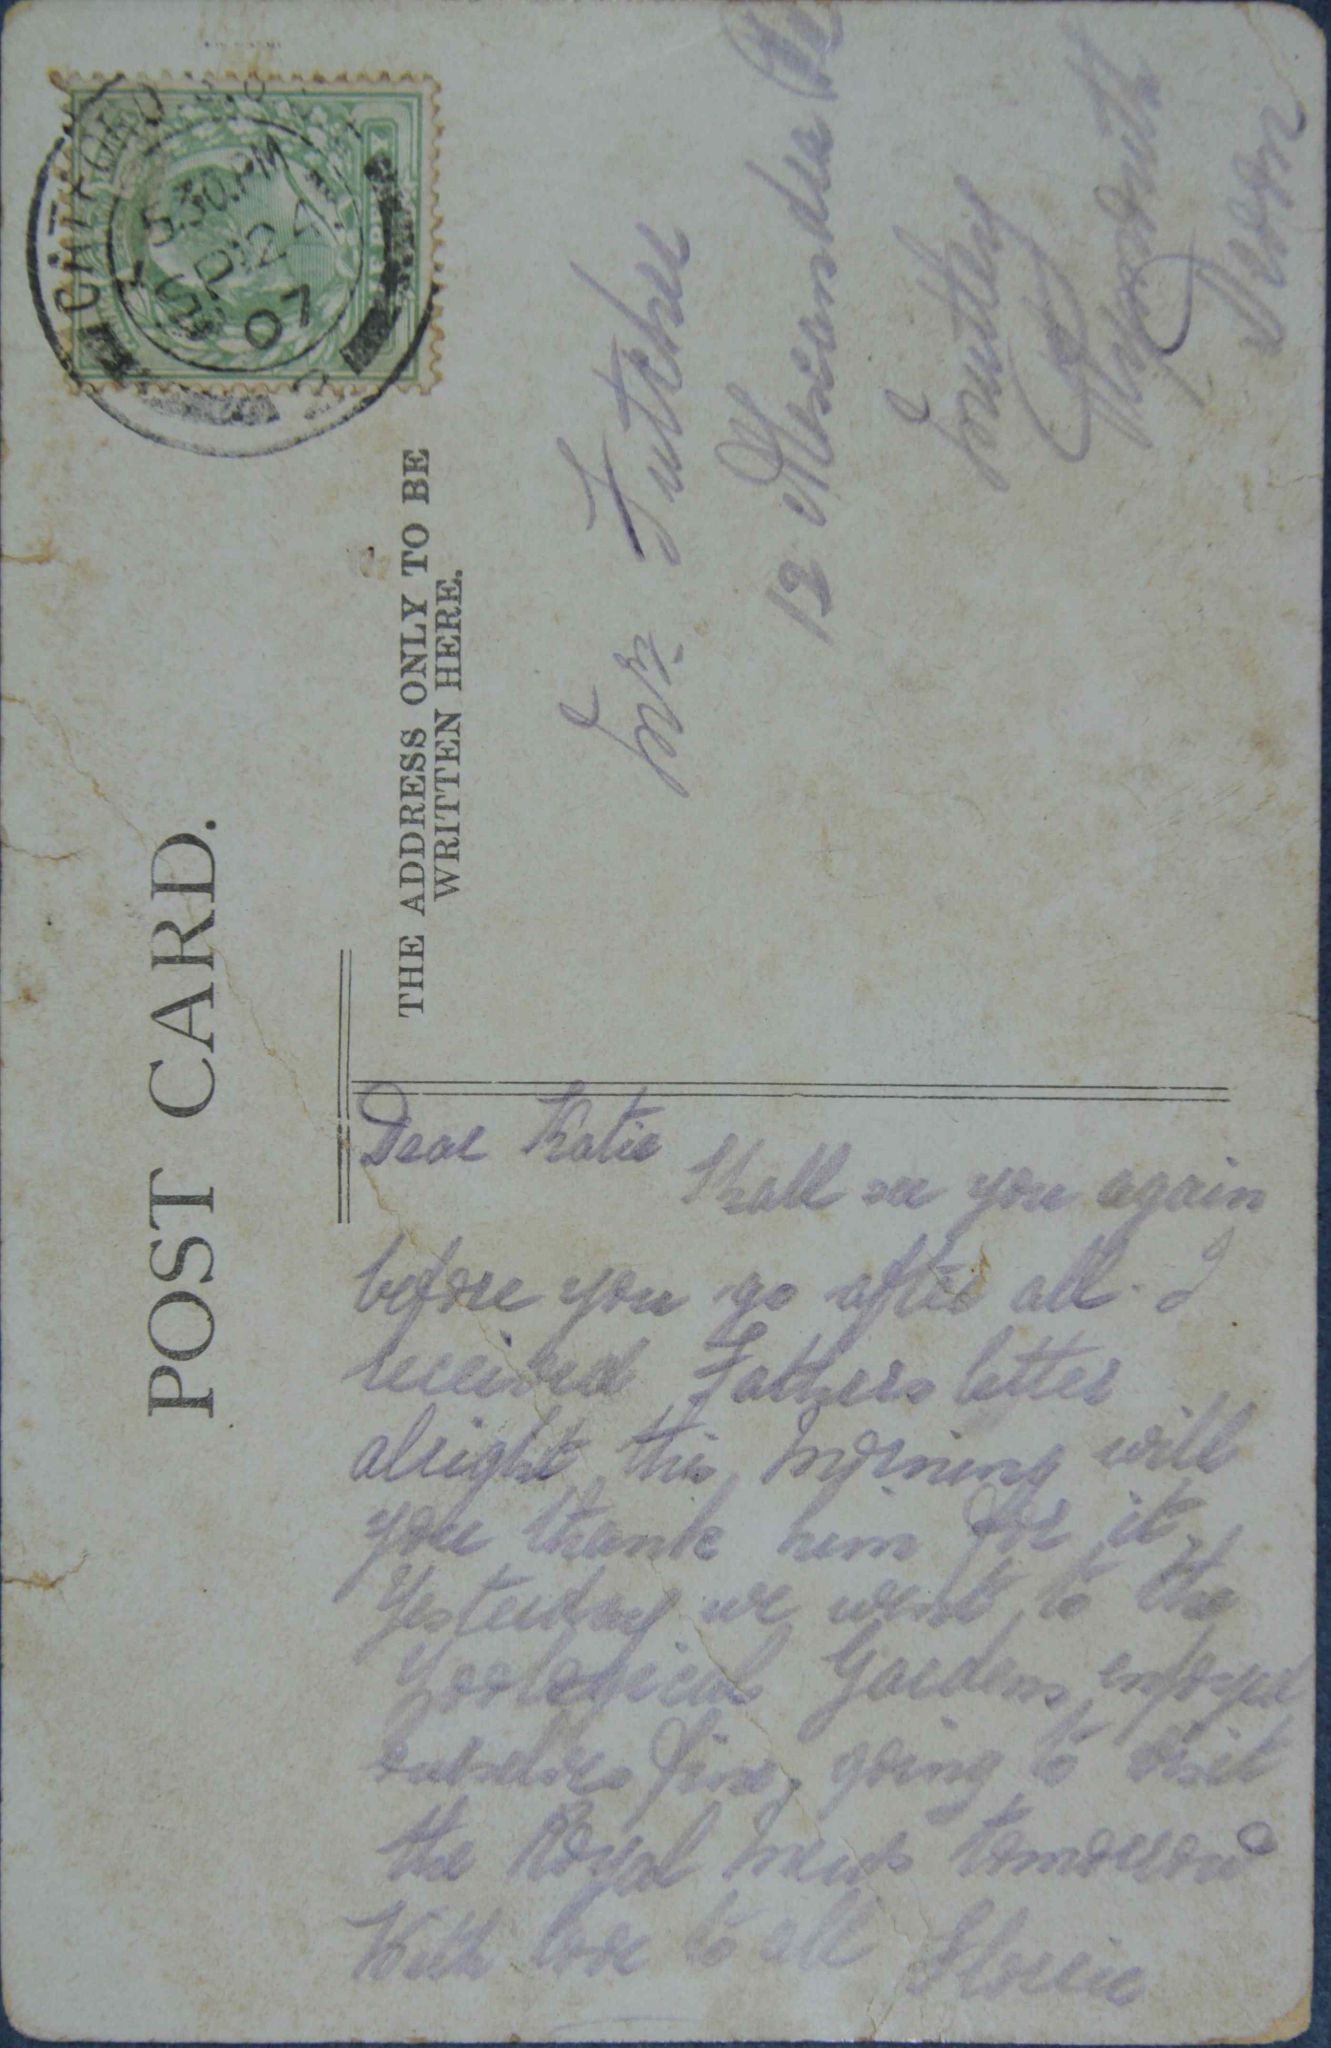 POST CARD.
THE ADDRESS ONLY TO BE
WRITTEN HERE.
5.30.PM
SP 24
07
Dear Katie
Shall see you again
before you go after all. I
received Fathers letter
alright this morning will
you thank him for it.
Yesterday we went to the
Zoological Gardens, enjoyed
ourselves fine, going to visit
the Royal mews tomorrow
With love to all Florrie
Mr. Futcher
12 Alexandra
Mutley
Plymouth
Devon